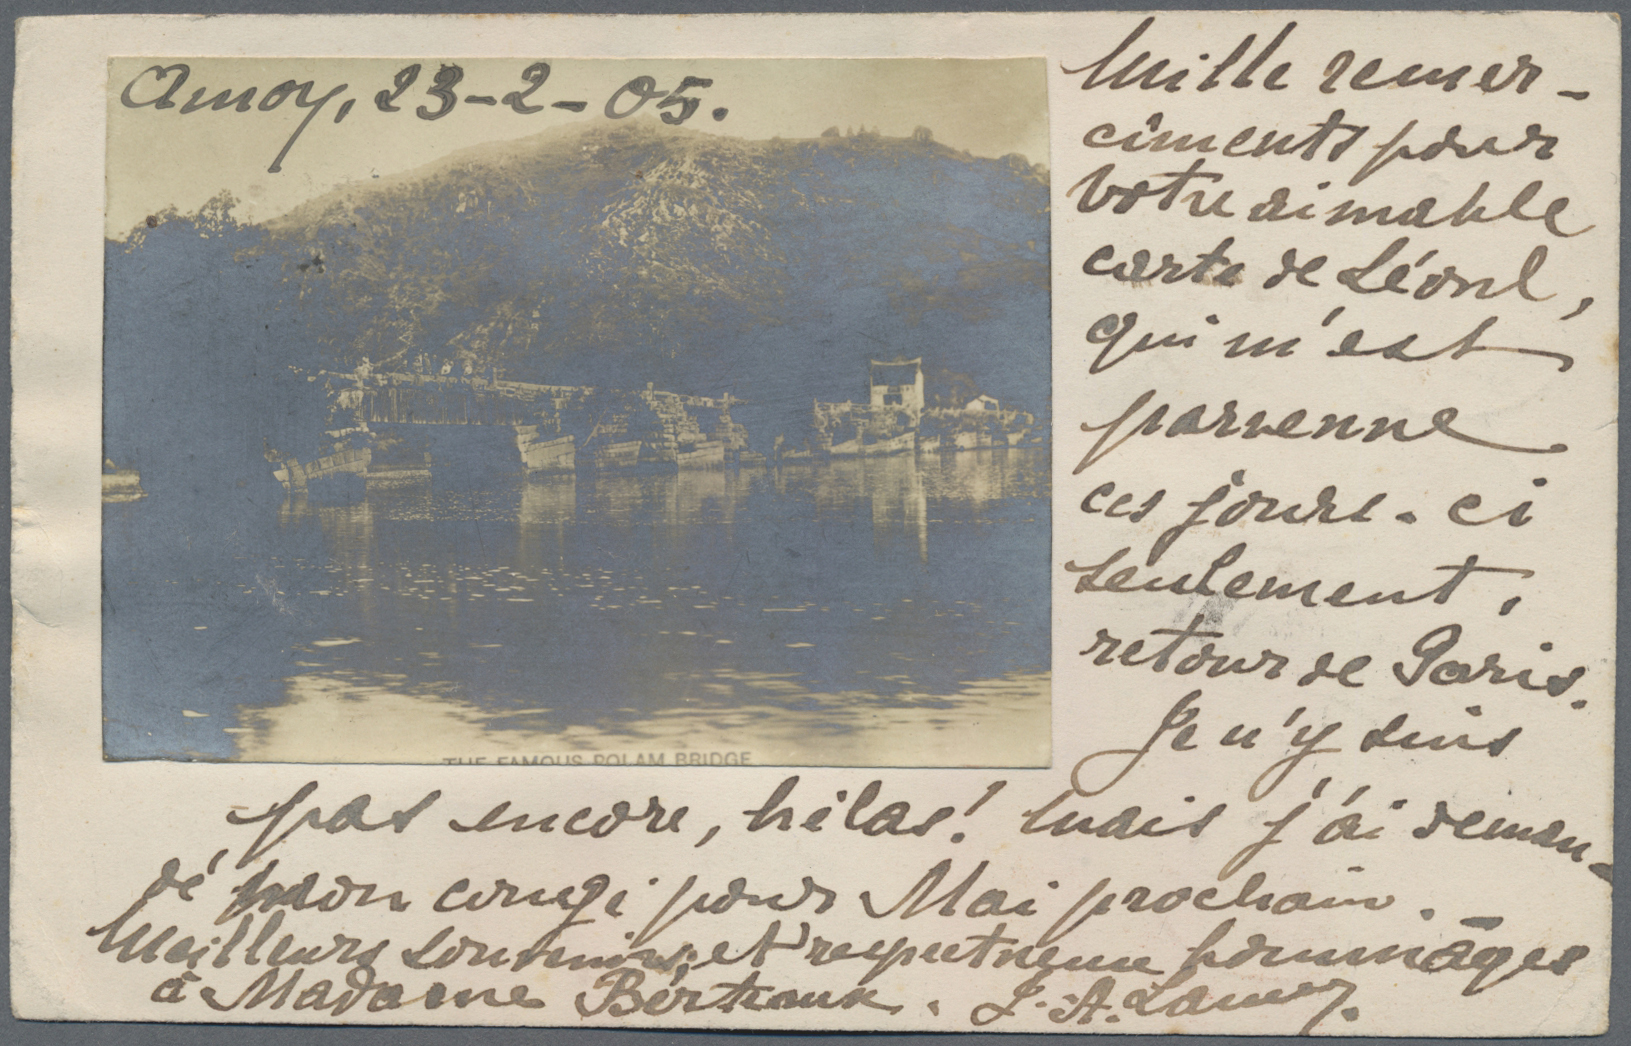 Amoy, 23-2-05.
Mille remer-
ciments pour
votre aimable
carte de Séoul,
qui m'est
parvenue
ces jours-ci
seulement,
retour de Paris.
Je n'y suis
pas encore, hélas! mais j'ai deman-
dé mon congé pour Mai prochain.
Meilleurs souvenirs, et respectueux hommages
à Madame Berteaux. J. A.
THE FAMOUS POLAM BRIDGE